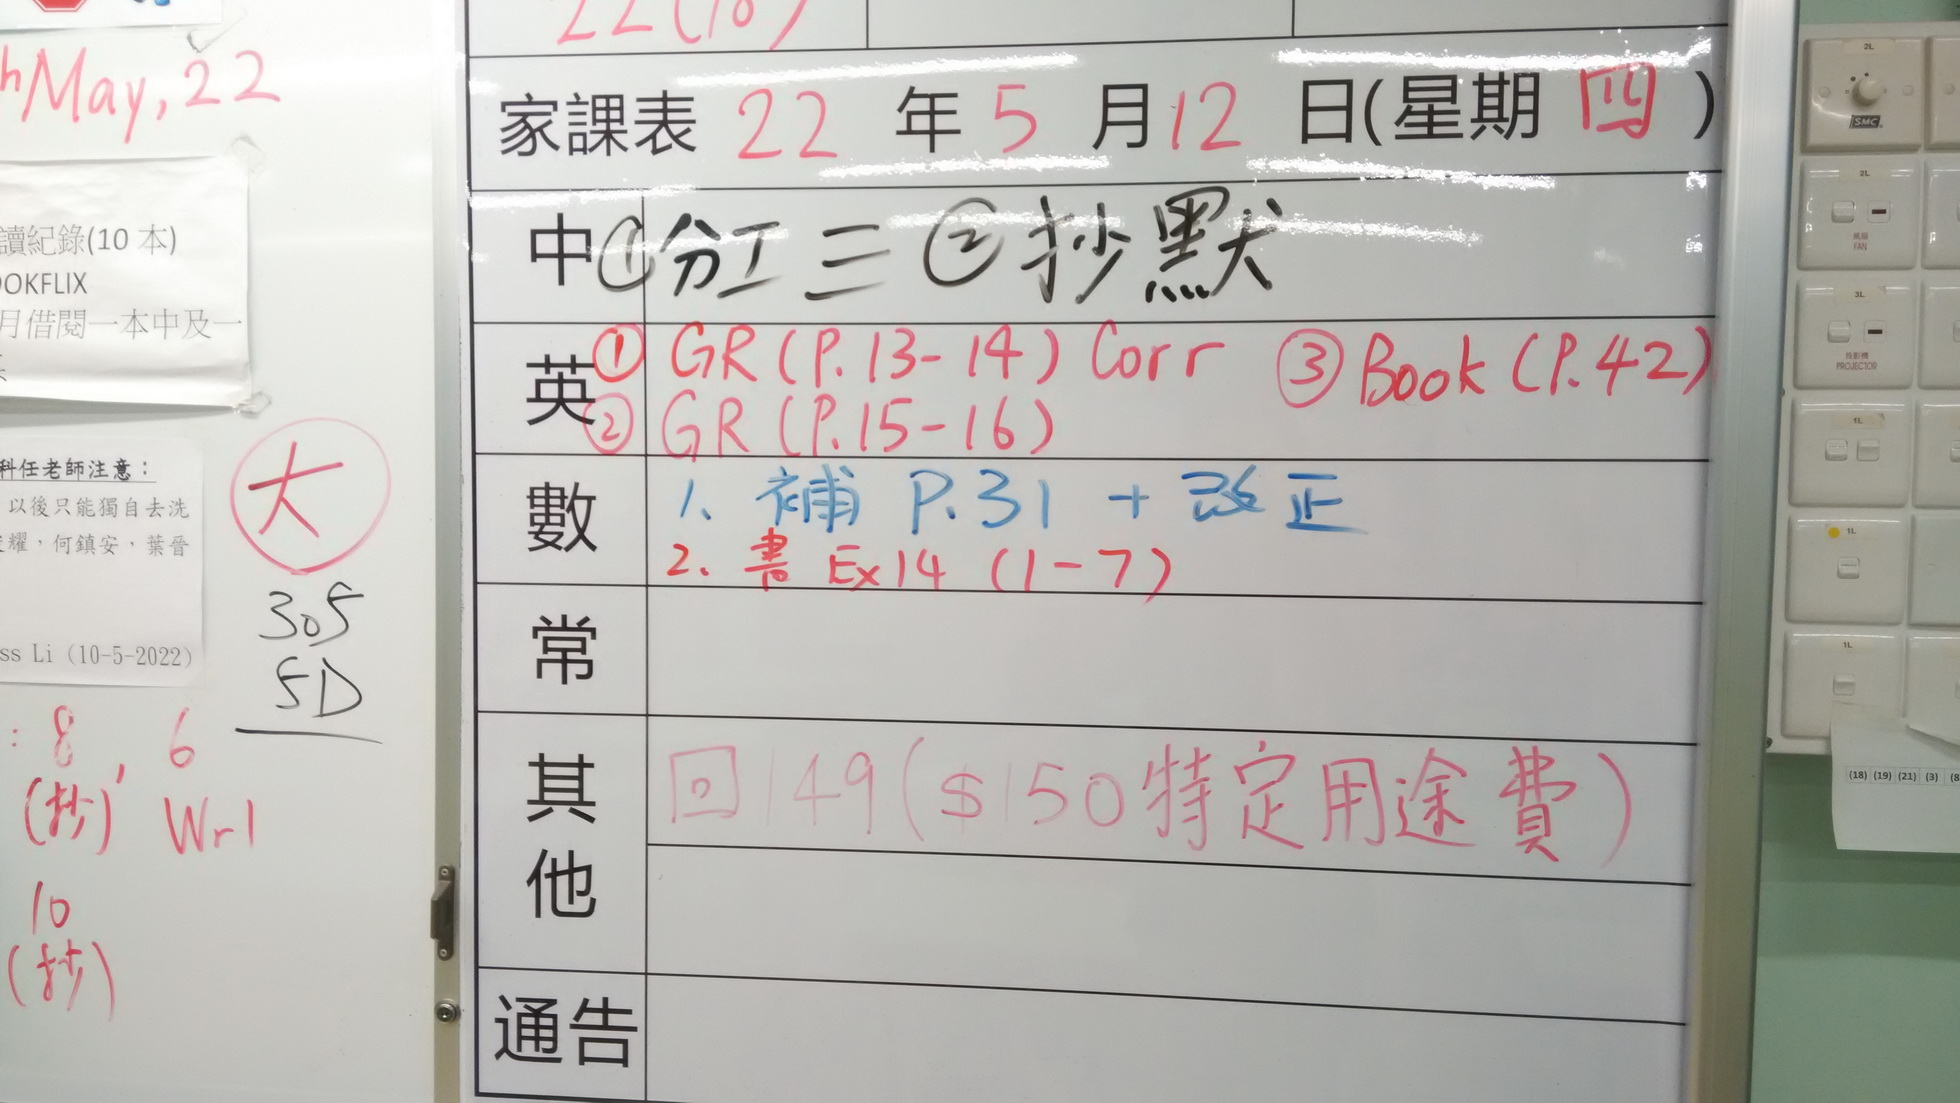 May, 22
讀紀錄(10 本)
OOKFLIX
月借閱一本中及一
科任老師注意：
以後只能獨自去洗
耀，何鎮安，葉晉
ss Li (10-5-2022)
大
305
5D
: 8, 6
(抄) Wr1
10
(抄)
22(18)
家課表 22 年 5 月 12 日(星期 四 )
中 ① 三 ② 抄默
英 ① GR (P.13-14) Corr ③ Book (P.42)
② GR (P.15-16)
數 1. 補 P.31 + 改正
2. 書 Ex14 (1-7)
常
其他 回149($150特定用途費)
通告
2L
SMC
2L
風扇
FAN
3L
投影機
PROJECTOR
1L
1L
1L
(18) (19) (21) (3) (8